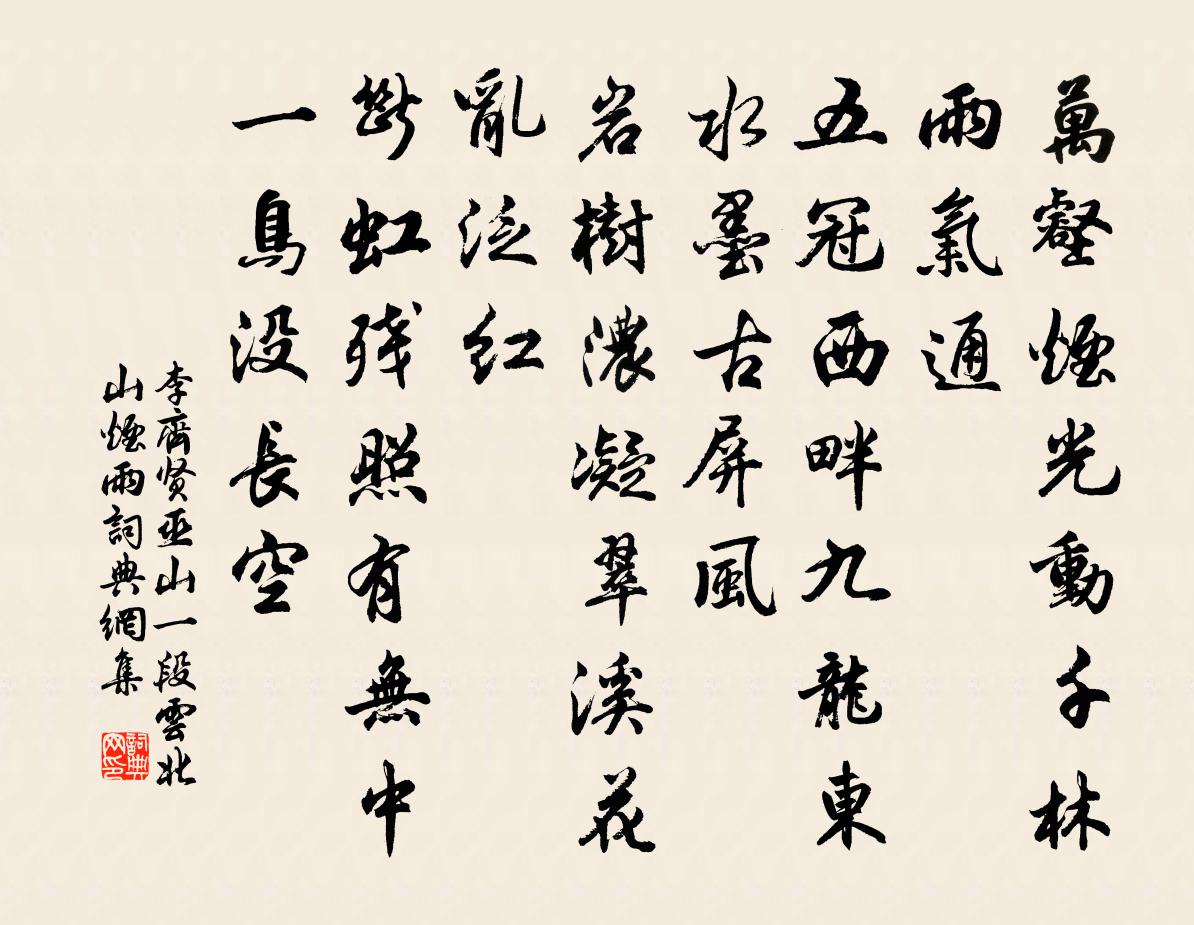 萬壑煙光動千林
雨氣通
五冠西畔九龍東
水墨古屏風
岩樹濃凝翠溪花
亂泛红
斷虹残照有無中
一鳥没長空
李齊贤巫山一段雲北
山煙雨詞典網集
詞典网印